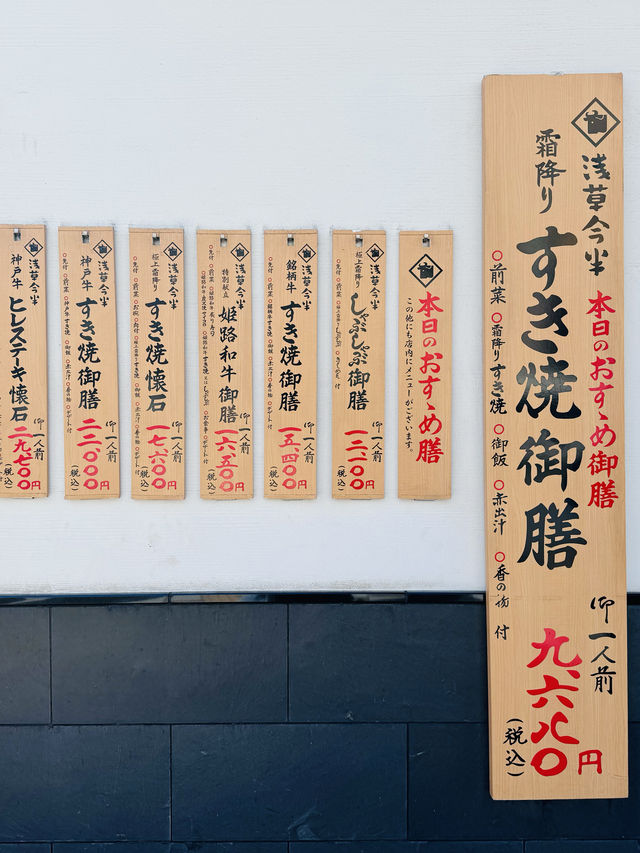 浅草今半
本日のおすゝめ御膳
御一人前
霜降り
すき焼御膳
○前菜 ○霜降りすき焼 ○御飯 ○赤出汁 ○香の物 付
九、六八〇円
(税込)
本日のおすゝめ膳
この他にも店内にメニューがございます。
浅草今半
極上霜降り
しゃぶしゃぶ御膳
御一人前
一二、一〇〇円
(税込)
浅草今半
銘柄牛
すき焼御膳
御一人前
一五、四〇〇円
(税込)
浅草今半
特別献立
姫路和牛御膳
御一人前
一六、五〇〇円
(税込)
浅草今半
極上霜降り
すき焼懐石
御一人前
一七、六〇〇円
(税込)
浅草今半
神戸牛
すき焼御膳
御一人前
○先付 ○前菜 ○神戸牛すき焼 ○御飯 ○赤出汁 ○香の物 ○デザート 付
二二、〇〇〇円
(税込)
浅草今半
神戸牛
ヒレステーキ懐石
御一人前
二九、七〇〇円
(税込)